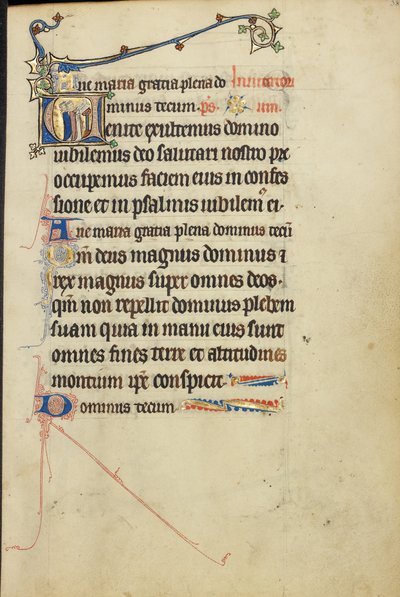 Aue maria gratia plena do Inuitator
minus tecum. ps. um.
Uenite exultemus domino
iubilemus deo salutari nostro pre
occupemus faciem eius in confes
sione et in psalmis iubilem' ei.
Aue maria gratia plena dominus tecū
Qm̄ deus magnus dominus ⁊
rex magnus super omnes deos.
qm̄ non repellit dominus plebem
suam quia in manu eius sunt
omnes fines terre et altitudines
montium ip̄e conspicit.
Dominus tecum